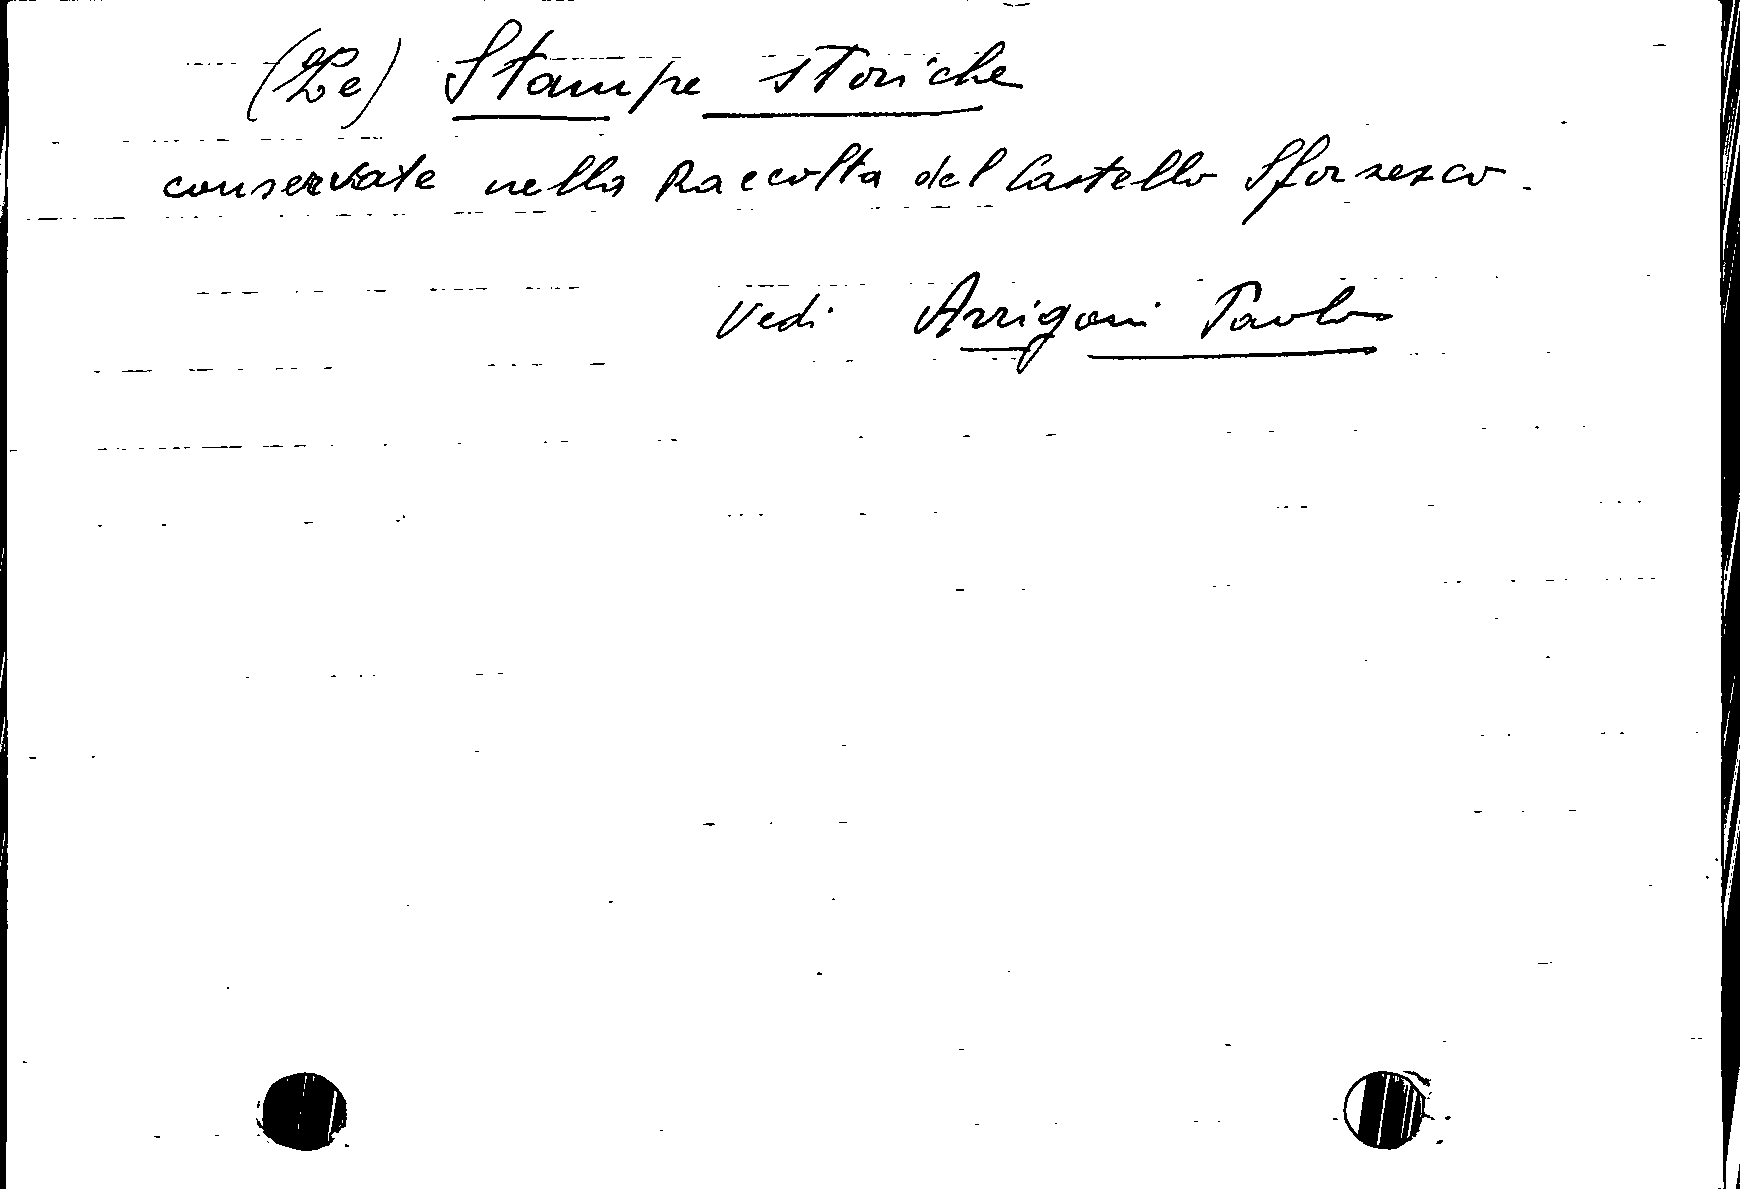 (Le) Stampe storiche
conservate nella Raccolta del Castello Sforzesco.
Vedi Arrigoni Paolo